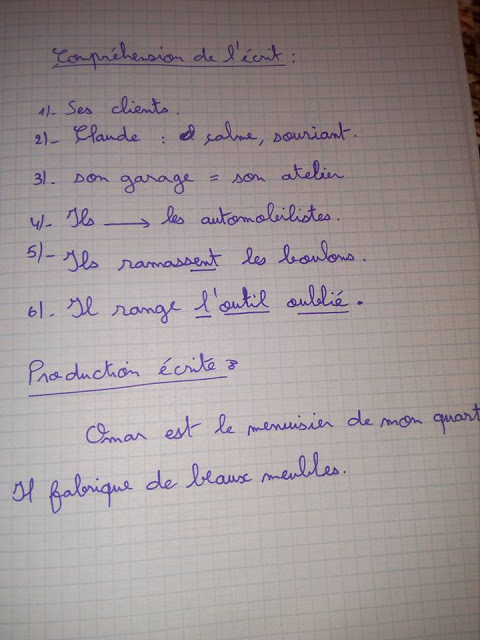 Compréhension de l'écrit :
1)- Ses clients.
2)- Claude : calme, souriant.
3)- son garage = son atelier
4)- Ils → les automobilistes.
5)- Ils ramassent les boulons.
6)- Il range l'outil oublié.
Production écrite :
Omar est le menuisier de mon quart
Il fabrique de beaux meubles.